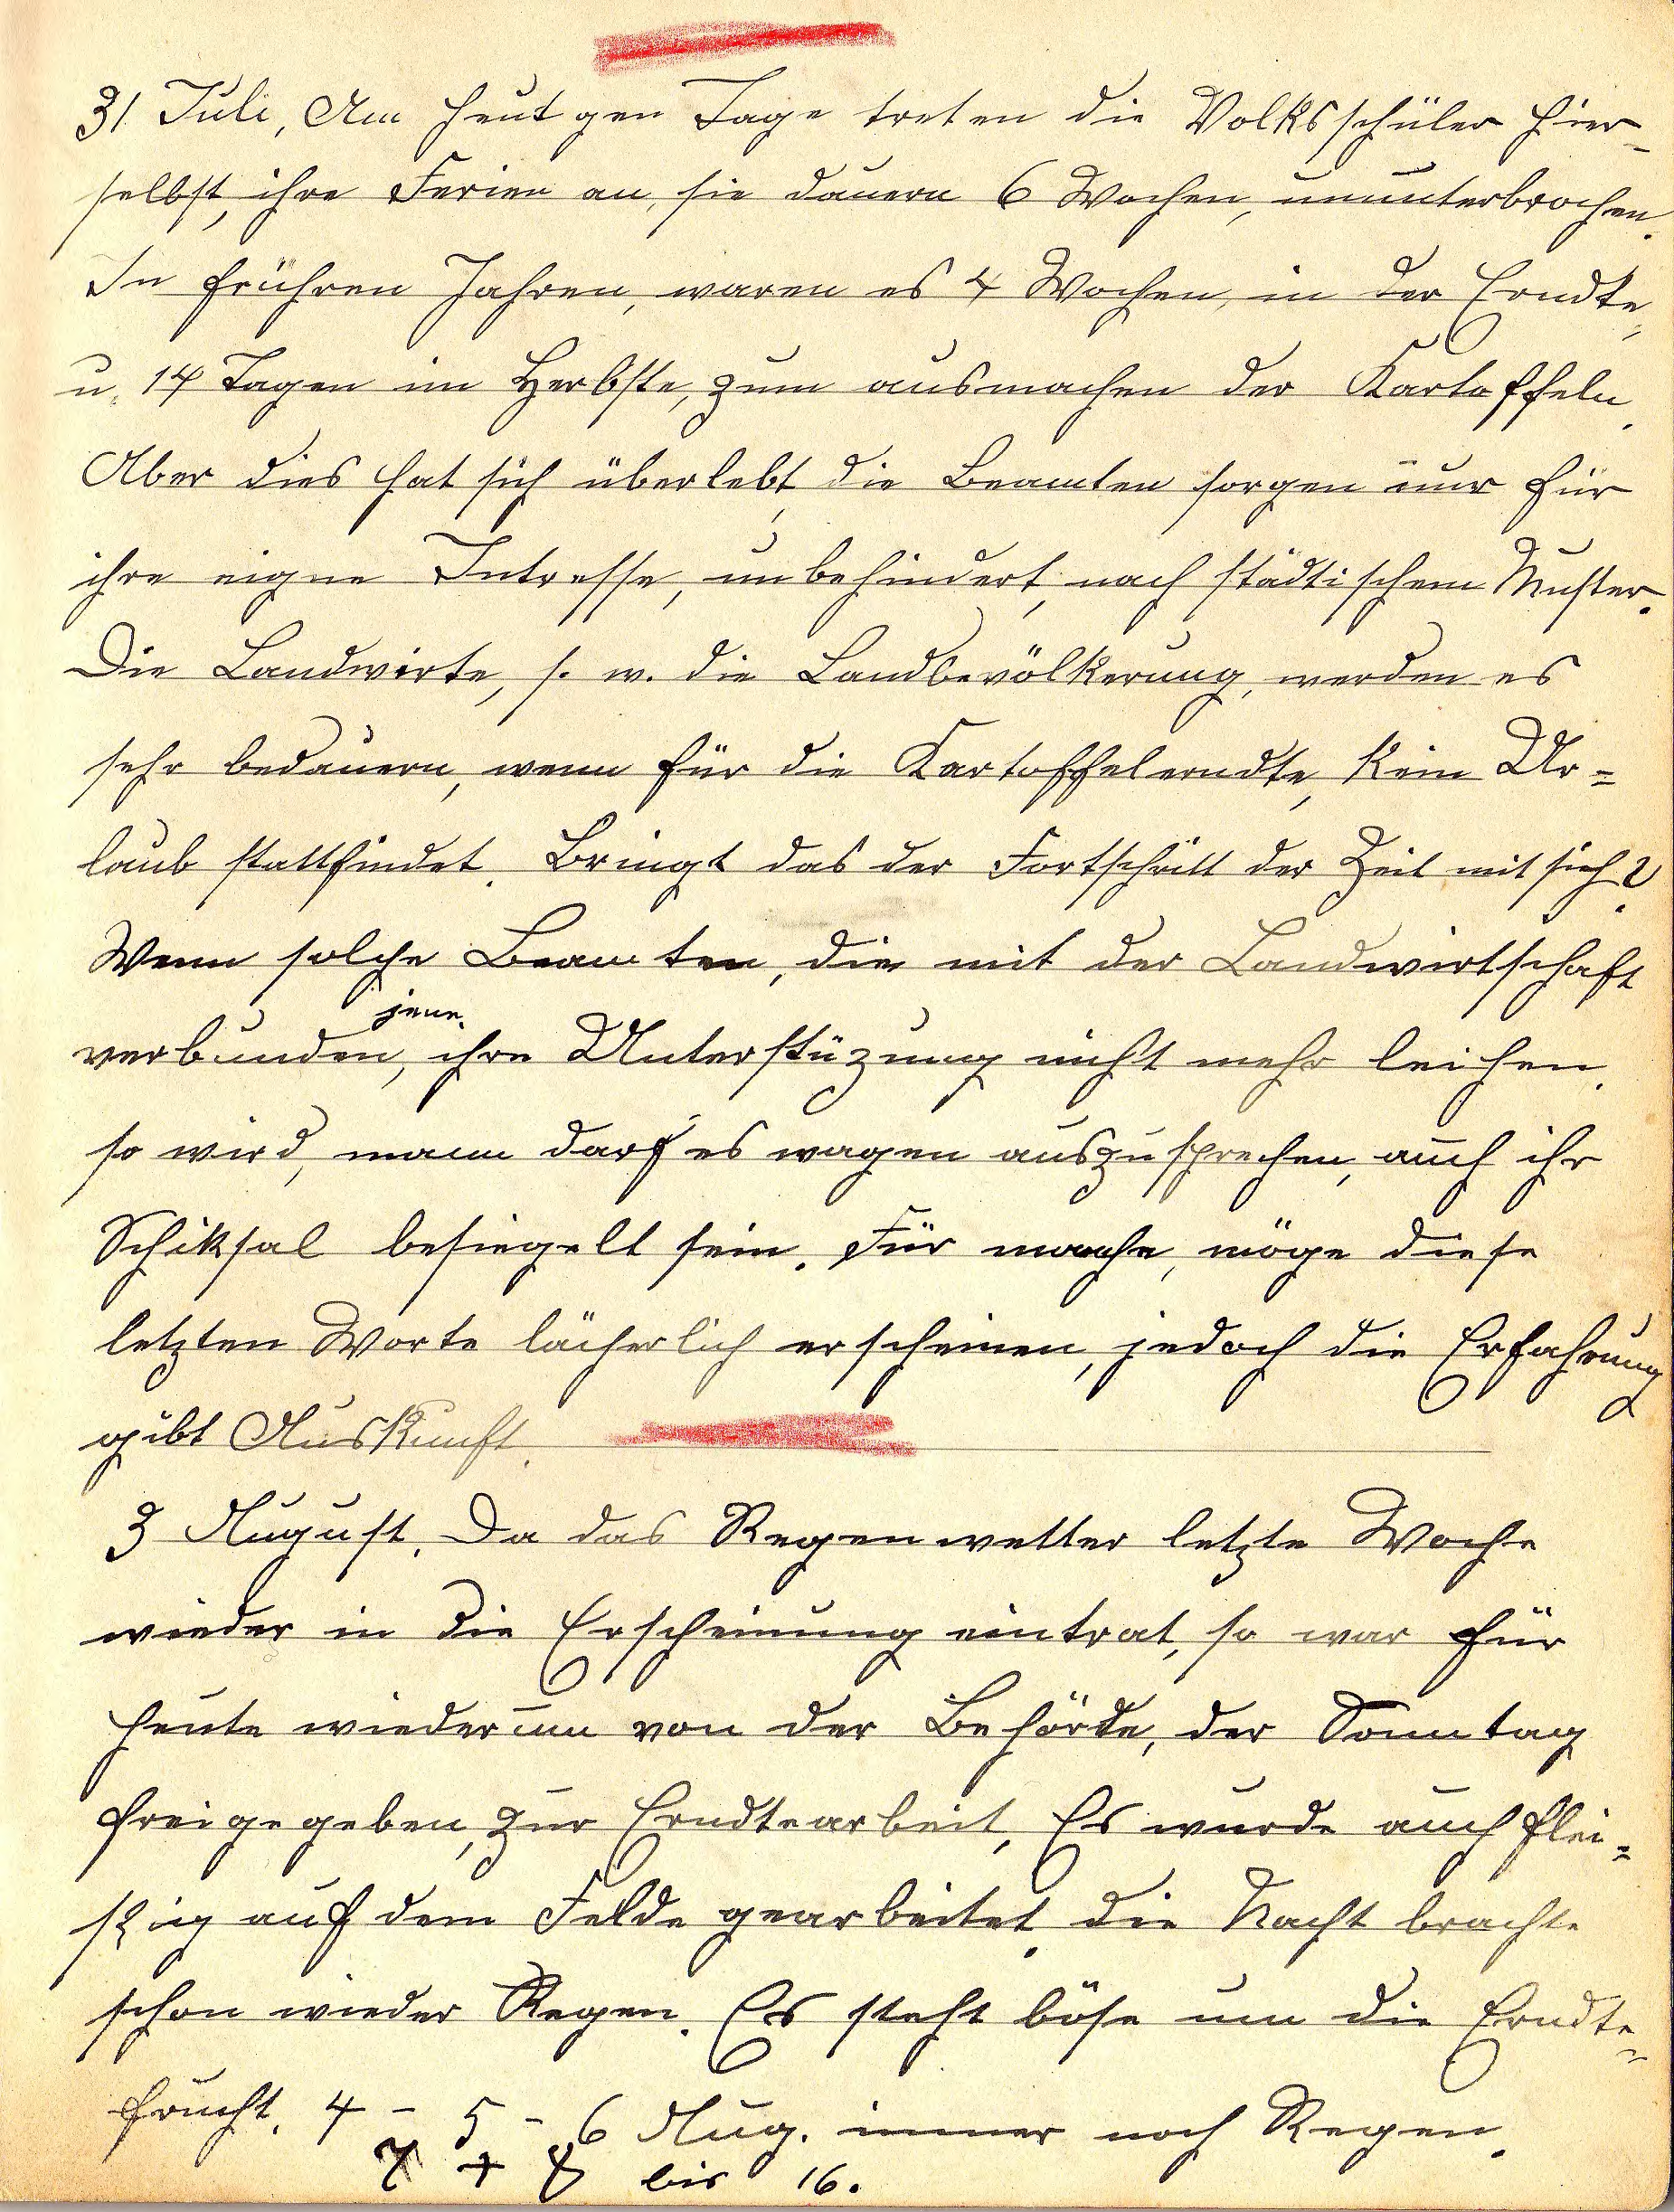 31 Juli, Am heutgen Tage treten die Volksschüler hier-
selbst, ihre Ferien an, sie dauern 6 Wochen, ununterbrochen.
In frühren Jahren, waren es 4 Wochen, in der Erndte,
u. 14 Tagen im Herbste, zum ausmachen der Kartoffeln.
Aber dies hat sich überlebt, die Beamten sorgen nur für
ihre eigne Intresse, unbehindert, nach städtischem Muster.
Die Landwirte, s. w. die Landbevölkerung, werden es
sehr bedauern, wenn für die Kartoffelerndte, kein Ur=
laub stattfindet. Bringt das der Fortschritt der Zeit mit sich?
Wenn solche Beamten, die mit der Landwirtschaft
jene.
verbunden, ihre Unterstüzung nicht mehr leihen.
so wird, mann darf es wagen auszusprechen, auch ihr
Schiksal besiegelt sein. Für manche, möge diese
letzten Worte lächerlich erscheinen, jedoch die Erfahrung
gibt Auskunft.
3 August. Da das Regenwetter letzte Woche
wieder in die Erscheinung eintrat, so war für
heute wiederum von der Behörde, der Sonntag
freigegeben, zur Erndtearbeit, Es wurde auch flei=
ßig auf dem Felde gearbeitet. die Nacht brachte
schon wieder Regen. Es steht böse um die Erndte=
frucht. 4 - 5 - 6 Aug. immer noch Regen.
7 + 8 bis 16.